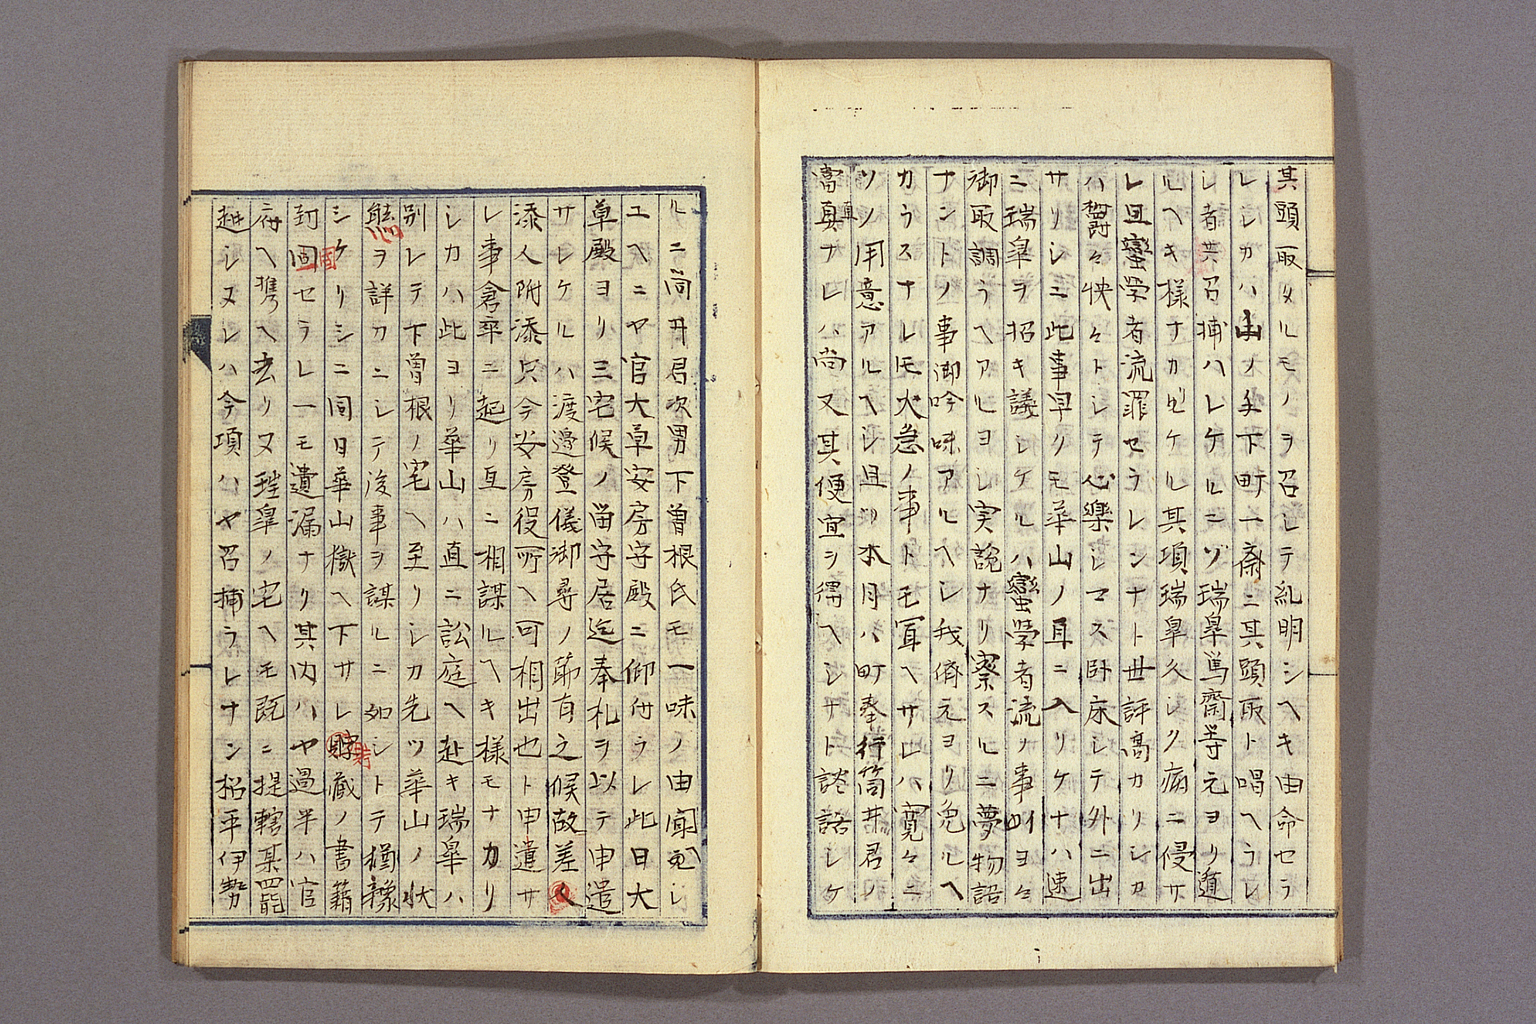 其頭取タルモノヲ召シテ糺明シヘキ由命セラ
レシカハ山ノ手下町一斎ニ其頭取ト唱ヘラレ
シ者共召捕ハレケルニゾ瑞皐篤齋等元ヨリ遁
ルヘキ様ナカリケル其項瑞皐久シク病ニ侵サ
レ且蠻学者流罪セラレンナト世評高カリシカ
ハ欝々怏々トシテ心樂シマス臥床シテ外ニ出
サリシニ此事早クモ華山ノ耳ニ入リケナハ速
ニ瑞皐ヲ招キ議シケルハ蠻学者流ノ事叫ヨ々
御取調ラヘアルヨシ実説ナリ察スルニ夢物語
ナントノ事御吟味アルヘシ我儕元ヨリ免ルヘ
カラスナレ𪜈火急ノ事トモ冝ヘサレハ寛々ニ
ソノ用意アルヘシ且ツ本月ハ町奉行筒井君ノ
當直ナレハ尚又其便宜ヲ得ヘシサト談話シケ
ルニ筒井君次男下曽根氏モ一味ノ由聞ヘシ
ユヘニヤ官大草安房守殿ニ仰付ラレ此日大
草殿ヨリ三宅候ノ畄守居迄奉札ヲ以テ申遣
サレケルハ渡邉登儀御尋ノ筋有之候故差
添人附添只今安房役所ヘ可相出也ト申遣サ
レ事倉卒ニ起リ互ニ相謀ルヘキ様モナカリ
シカハ此ヨリ華山ハ直ニ訟庭ヘ赴キ瑞皐ハ
別レテ下曽根ノ宅ヘ至リシカ先ツ華山ノ状
態ヲ詳カニシテ後事ヲ謀ルニ如シトテ猶豫
シケリシニ同日華山獄ヘ下サレ貯藏ノ書藉
封固セラレ一モ遺漏ナリ其内ハヤ過半ハ官
府ヘ携ヘ去リ又瑞皐ノ宅ヘモ既ニ提轄某罷
越シヌレハ今項ハヤ召捕ラレナン松平伊勢